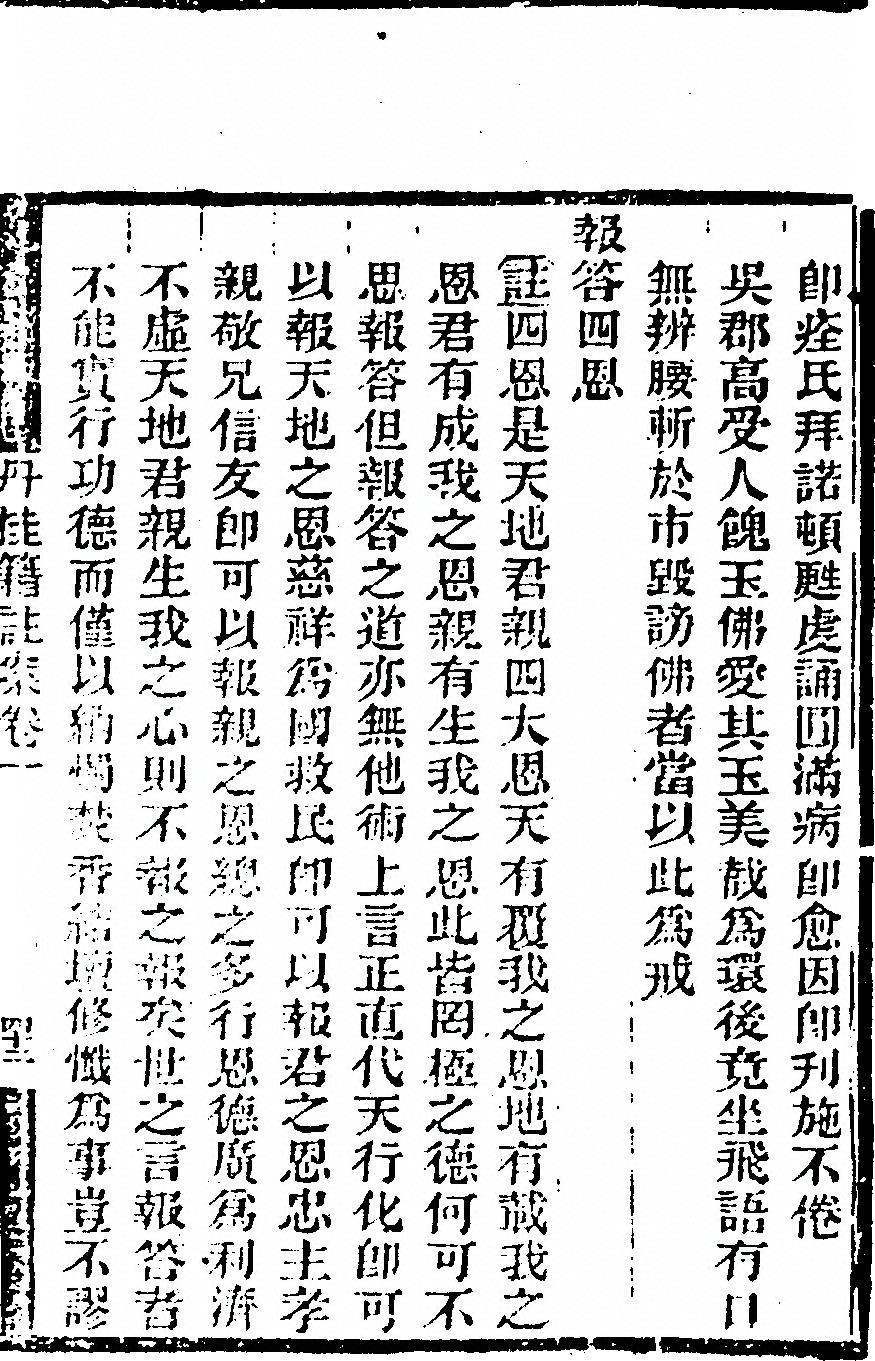 卽痊氏拜諾頓甦虔誦圓滿病卽愈因卽刋施不倦
吳郡高受人餽玉佛愛其玉美戠爲環後竟坐飛語有口
無辨腰斬於市毀謗佛者當以此爲戒
報答四恩
註四恩是天地君親四大恩天有覆我之恩地有載我之
恩君有成我之恩親有生我之恩此皆罔極之德何可不
思報答但報答之道亦無他術上言正直代天行化卽可
以報天地之恩慈祥爲國救民卽可以報君之恩忠主孝
親敬兄信友卽可以報親之恩總之多行恩德廣爲利濟
不虛天地君親生我之心則不報之報矣世之言報答者
不能實行功德而僅以焚香結壇修懺爲事豈不謬
丹桂籍註案卷一